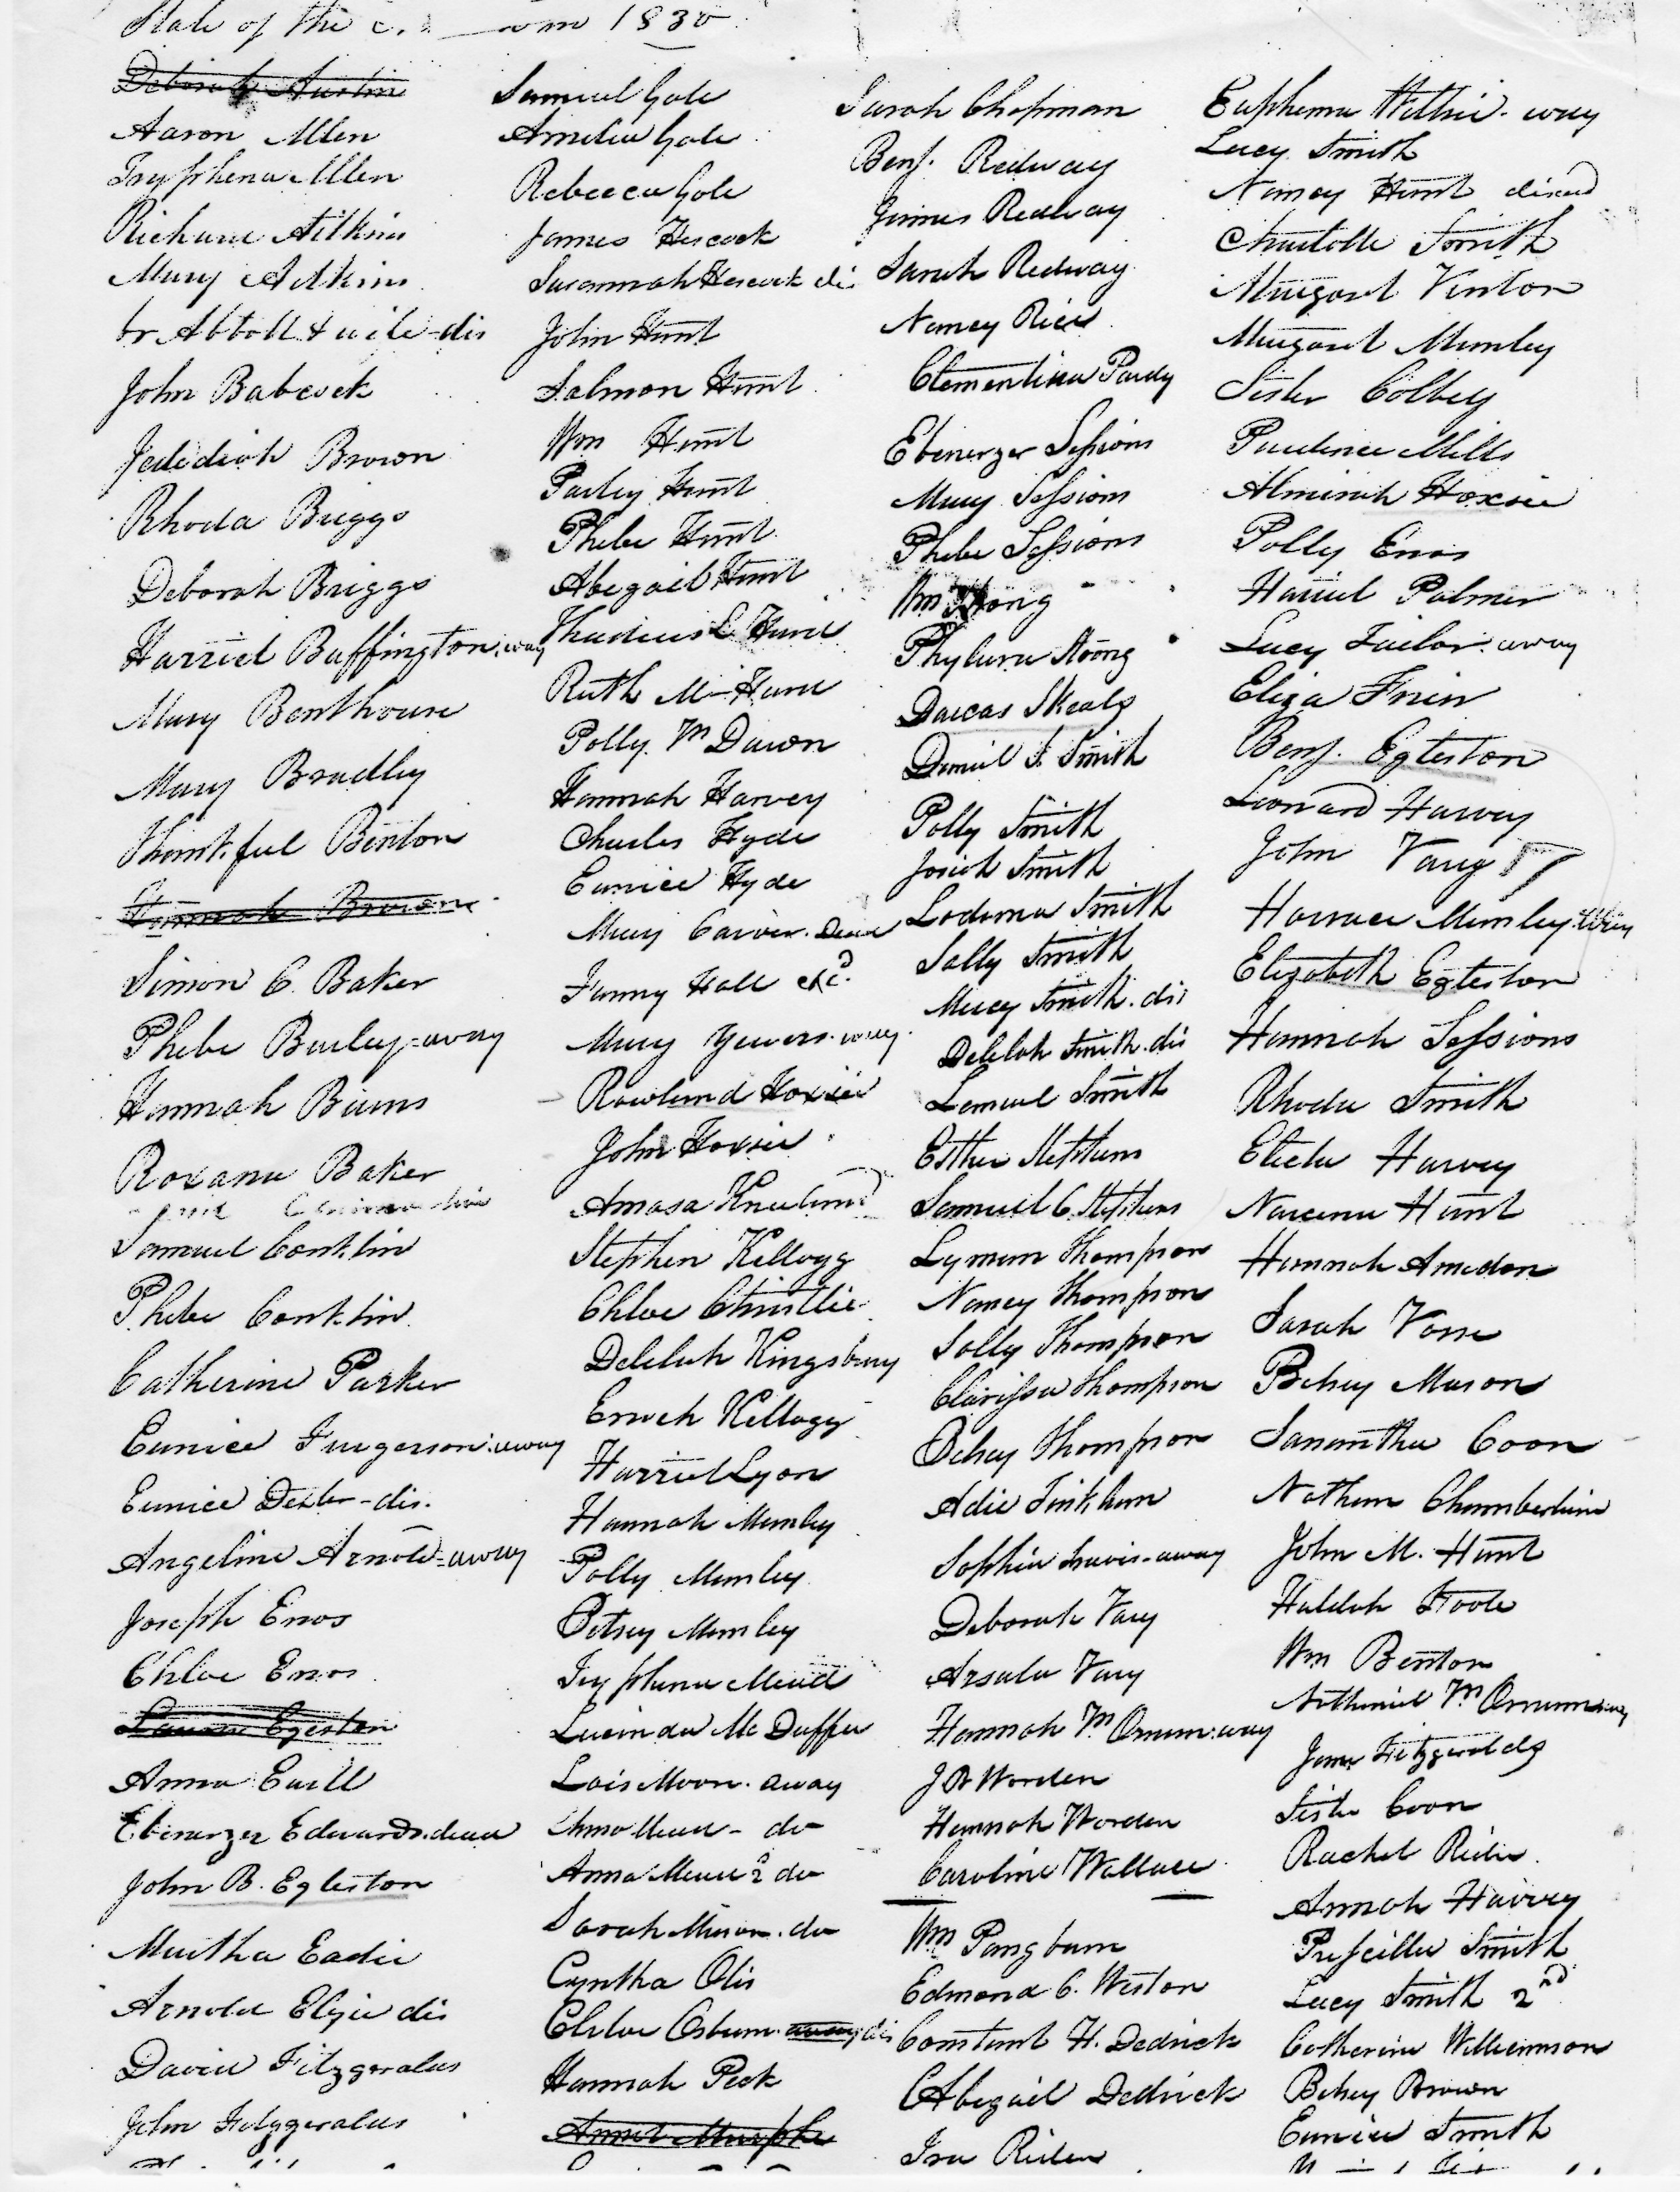 State of the 1830
Deborah Austin
Aaron Allen
Tryphena Allen
Richard Atkins
Mary Adkins
br Abbott & wife - dis
John Babcock
Jedidiah Brown
Rhoda Briggs
Deborah Briggs
Harriet Buffington. way
Mary Benthouse
Mary Bradley
Thankful Benton
Hannah Browne
Simon C. Baker
Phebe Burley - away
Hannah Burns
Roxana Baker
Samuel Conklin
Phebe Conklin
Catherine Parker
Eunice Furgerson. away
Eunice Dexter - dis.
Angeline Arnold - away
Joseph Enos
Chloe Enos
Egleston
Anna Earll
Ebenezer Edwards. dead
John B. Egleston
Martha Eadie
Arnold Elgie dis
David Fitzgeralds
John Fitzgeralds
Samuel Gale
Amelia Gale
Rebecca Gale
James Hescock
Susannah Hescock di
John Hunt
Salmon Hunt
Wm Hunt
Parley Hunt
Phebe Hunt
Abegail Hunt
Thadeus L Hurd
Ruth M Hurd
Polly Mc Dawn
Hannah Harvey
Charles Hyde
Eunice Hyde
Mary Carver. Dead
Fanny Hall exc.d
Mary Yewers. way
Rowland Hoxsie
John Hoxsie
Amasa Kneeland
Stephen Kellogg
Chloe Christlie
Delilah Kingsbury
Enoch Kellogg
Harriet Lyon
Hannah Manley
Polly Manley
Betsey Manley
Tryphena Mead
Lucinda Mc Duffee
Lois Moon. away
Mead - do
Anna Mead 2 do
Sarah Mason. do
Cyntha Olis
Chloe Osburn. away dis
Hannah Peck
Murphe
Sarah Chapman
Benj. Redway
James Redway
Sarah Redway
Nancy Rice
Clementina Pardy
Ebenezer Sessions
Mary Sessions
Phebe Sessions
Wm Strong
Phylura Strong
Darcas Skeals
Daniel S. Smith
Polly Smith
Josiah Smith
Lodema Smith
Sally Smith
Mercy Smith. dis
Delilah Smith. dis
Lemuel Smith
Esther Stephens
Samuel C. Stephens
Lyman Thompson
Nancy Thompson
Sally Thompson
Clarissa Thompson
Betsey Thompson
Adie Tinkham
Sophia Travis - away
Deborah Vary
Arsula Vary
Hannah Mc Ornum. way
J B Worden
Hannah Worden
Caroline Wallace
Wm Pangburn
Edmond C. Weston
Constant H. Dedrick
Abegail Dedrick
Ira Rider
Euphema Wiltsie - way
Lucy Smith
Nancy Hunt disccd
Christolle Smith
Margaret Vinton
Margaret Manley
Sister Colbey
Prudence Mills
Almirah Hoxsie
Polly Enos
Harriet Palmer
Lucy Tailor. away
Eliza Frier
Benj. Egleston
Leonard Harvey
John Vary
Horrace Manley. way
Elizabeth Egleston
Hannah Sessions
Rhoda Smith
Electa Harvey
Narcena Hunt
Hannah Amedon
Sarah Vosse
Betsey Mason
Samantha Coon
Nathan Chamberlain
John M. Hunt
Huldah Foote
Wm Benton
Nathaniel Mc Ornum way
Jane Fitzgeralds
Sister Coon
Rachel Rider
Annah Harvey
Prescilla Smith
Lucy Smith 2nd
Catherine Williamson
Betsey Brown
Eunice Smith